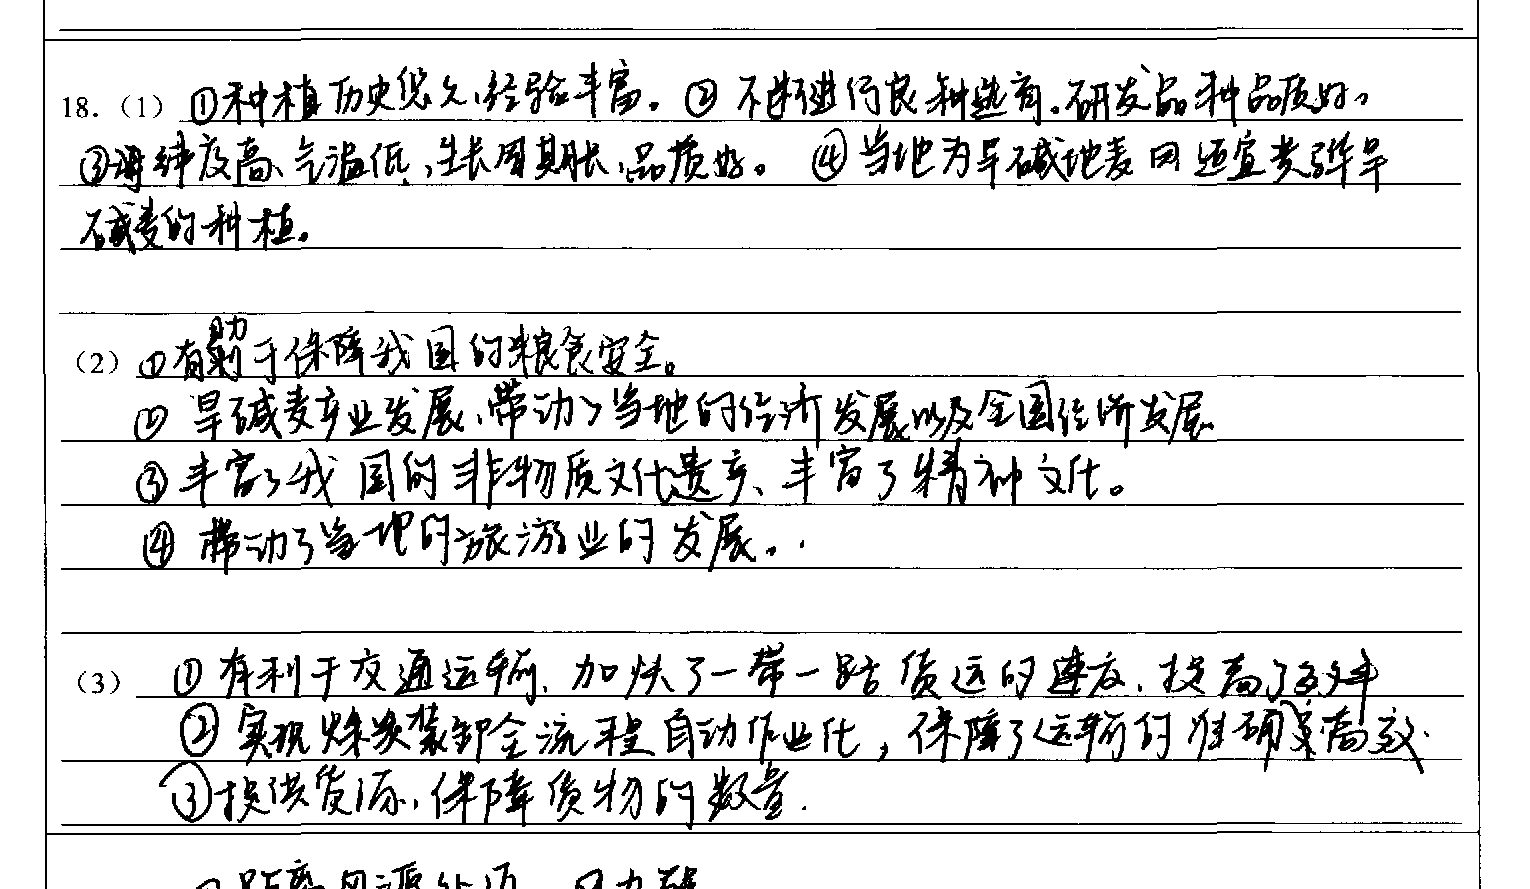 18.（1）①种植历史悠久,经验丰富。② 不断进行良种选育。研发品种品质好。
③海纬度高、气温低,生长周期长,品质好。④当地为旱碱地麦田适宜类群旱
碱麦的种植。
（2）①有助于保障我国的粮食安全。
② 旱碱麦产业发展,带动了当地的经济发展以及全国经济发展
③丰富了我国的非物质文化遗产、丰富了精神文化。
④ 带动了当地的旅游业的发展。.
（3）①有利于交通运输,加快了一带一路货运的速度,提高了效率
②实现煤炭装卸全流程自动作业化,保障了运输的准确高效.
③提供货源,保障货物的数量.